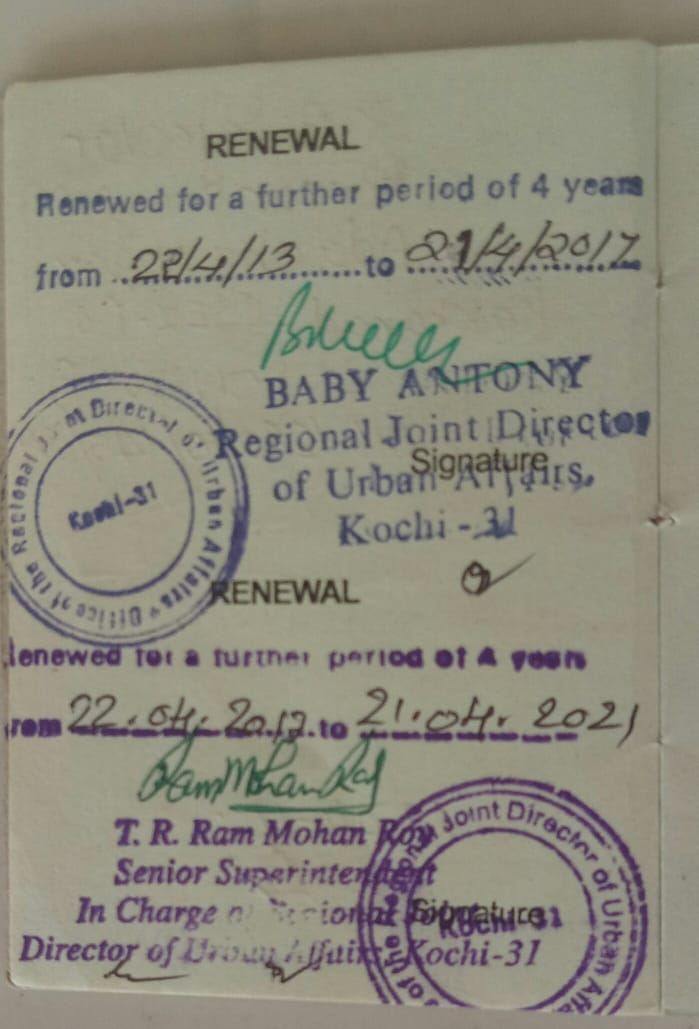 RENEWAL
Renewed for a further period of 4 years
from 22/4/13 to 21/4/2017
BABY ANTONY
Regional Joint Director
Signature
of Urban Affairs,
Kochi - 31
Office of the Regional Joint Director of Urban Affairs
Kochi-31
RENEWAL
Renewed for a further period of 4 years
from 22.04.2017 to 21.04.2021
Ram Mohan Roy
T. R. Ram Mohan Roy
Senior Superintendent
In Charge of Regional Joint
Signature
Director of Urban Affairs, Kochi-31
of the Regional Joint Director of Urban Affa
Kochi-31